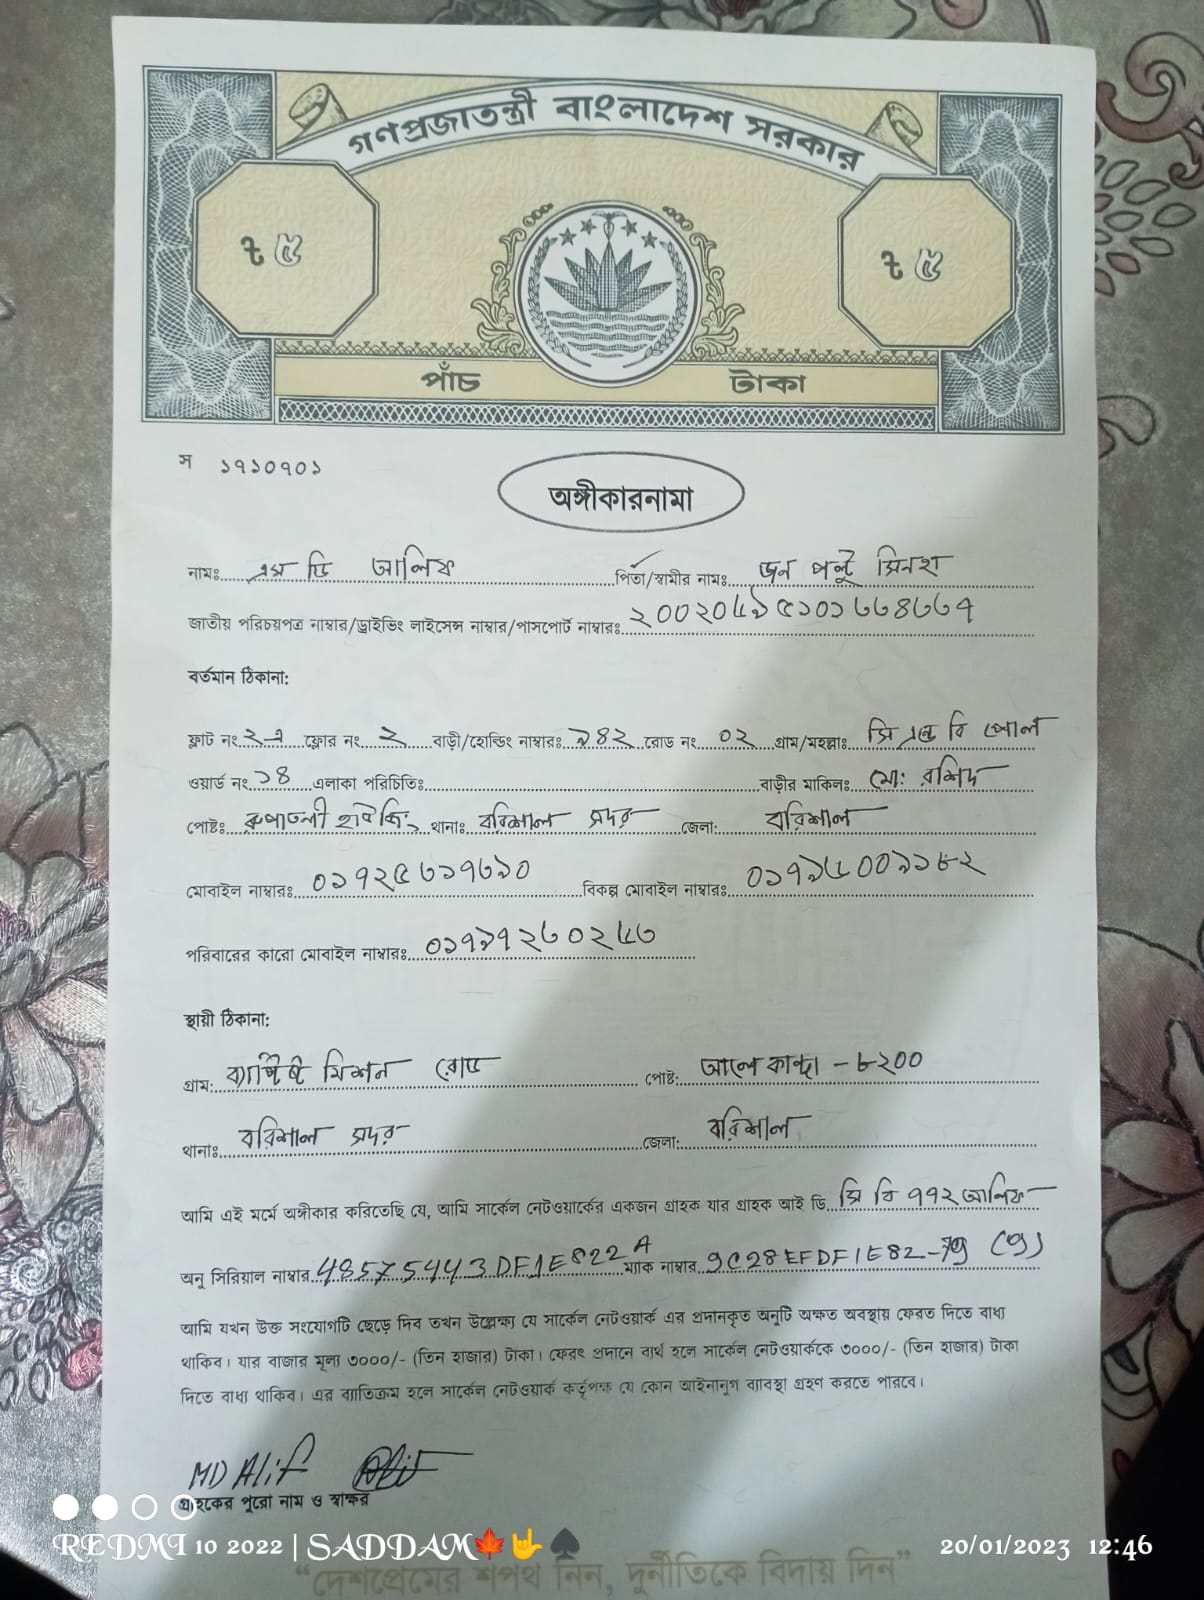 গণপ্রজাতন্ত্রী বাংলাদেশ সরকার
৳ ৫ ৳ ৫
পাঁচ টাকা
স ১৭১০৭০১
অঙ্গীকারনামা
নামঃ এম ডি আলিফ পিতা/স্বামীর নামঃ জন পল্টু সিনহা
জাতীয় পরিচয়পত্র নাম্বার/ড্রাইভিং লাইসেন্স নাম্বার/পাসপোর্ট নাম্বারঃ ২০০২০৬১৫১০১৬৬৪৬৬৭
বর্তমান ঠিকানা:
ফ্লাট নং ২-এ ফ্লোর নং ২ বাড়ী/হোল্ডিং নাম্বারঃ ৯৪২ রোড নং ০২ গ্রাম/মহল্লাঃ সি এন্ড বি পোল
ওয়ার্ড নং ১৪ এলাকা পরিচিতিঃ বাড়ীর মাকিলঃ মোঃ রশিদ
পোষ্টঃ রুপাতলী হাউজিং থানাঃ বরিশাল সদর জেলা: বরিশাল
মোবাইল নাম্বারঃ ০১৭২৫৬১৭৬১০ বিকল্প মোবাইল নাম্বারঃ ০১৭১৬০০৯১৮২
পরিবারের কারো মোবাইল নাম্বারঃ ০১৭১৭২৬০২৬৩
স্থায়ী ঠিকানা:
গ্রাম: ব্যাপ্টিষ্ট মিশন রোড পোষ্ট: আলেকান্দা - ৮২০০
থানাঃ বরিশাল সদর জেলা: বরিশাল
আমি এই মর্মে অঙ্গীকার করিতেছি যে, আমি সার্কেল নেটওয়ার্কের একজন গ্রাহক যার গ্রাহক আই ডি সি বি ৭৭২ আলিফ
অনু সিরিয়াল নাম্বার 48575443DF1E822A ম্যাক নাম্বার 9C28EFDF1E82-79 (9)
আমি যখন উক্ত সংযোগটি ছেড়ে দিব তখন উল্লেখ্য যে সার্কেল নেটওয়ার্ক এর প্রদানকৃত অনুটি অক্ষত অবস্থায় ফেরত দিতে বাধ্য
থাকিব। যার বাজার মূল্য ৩০০০/- (তিন হাজার) টাকা। ফেরৎ প্রদানে ব্যর্থ হলে সার্কেল নেটওয়ার্ককে ৩০০০/- (তিন হাজার) টাকা
দিতে বাধ্য থাকিব। এর ব্যতিক্রম হলে সার্কেল নেটওয়ার্ক কর্তৃপক্ষ যে কোন আইনানুগ ব্যাবস্থা গ্রহণ করতে পারবে।
MD Alif Alif
গ্রাহকের পুরো নাম ও স্বাক্ষর
REDMI 10 2022 | SADDAM 20/01/2023 12:46
"দেশপ্রেমের শপথ নিন, দুর্নীতিকে বিদায় দিন"